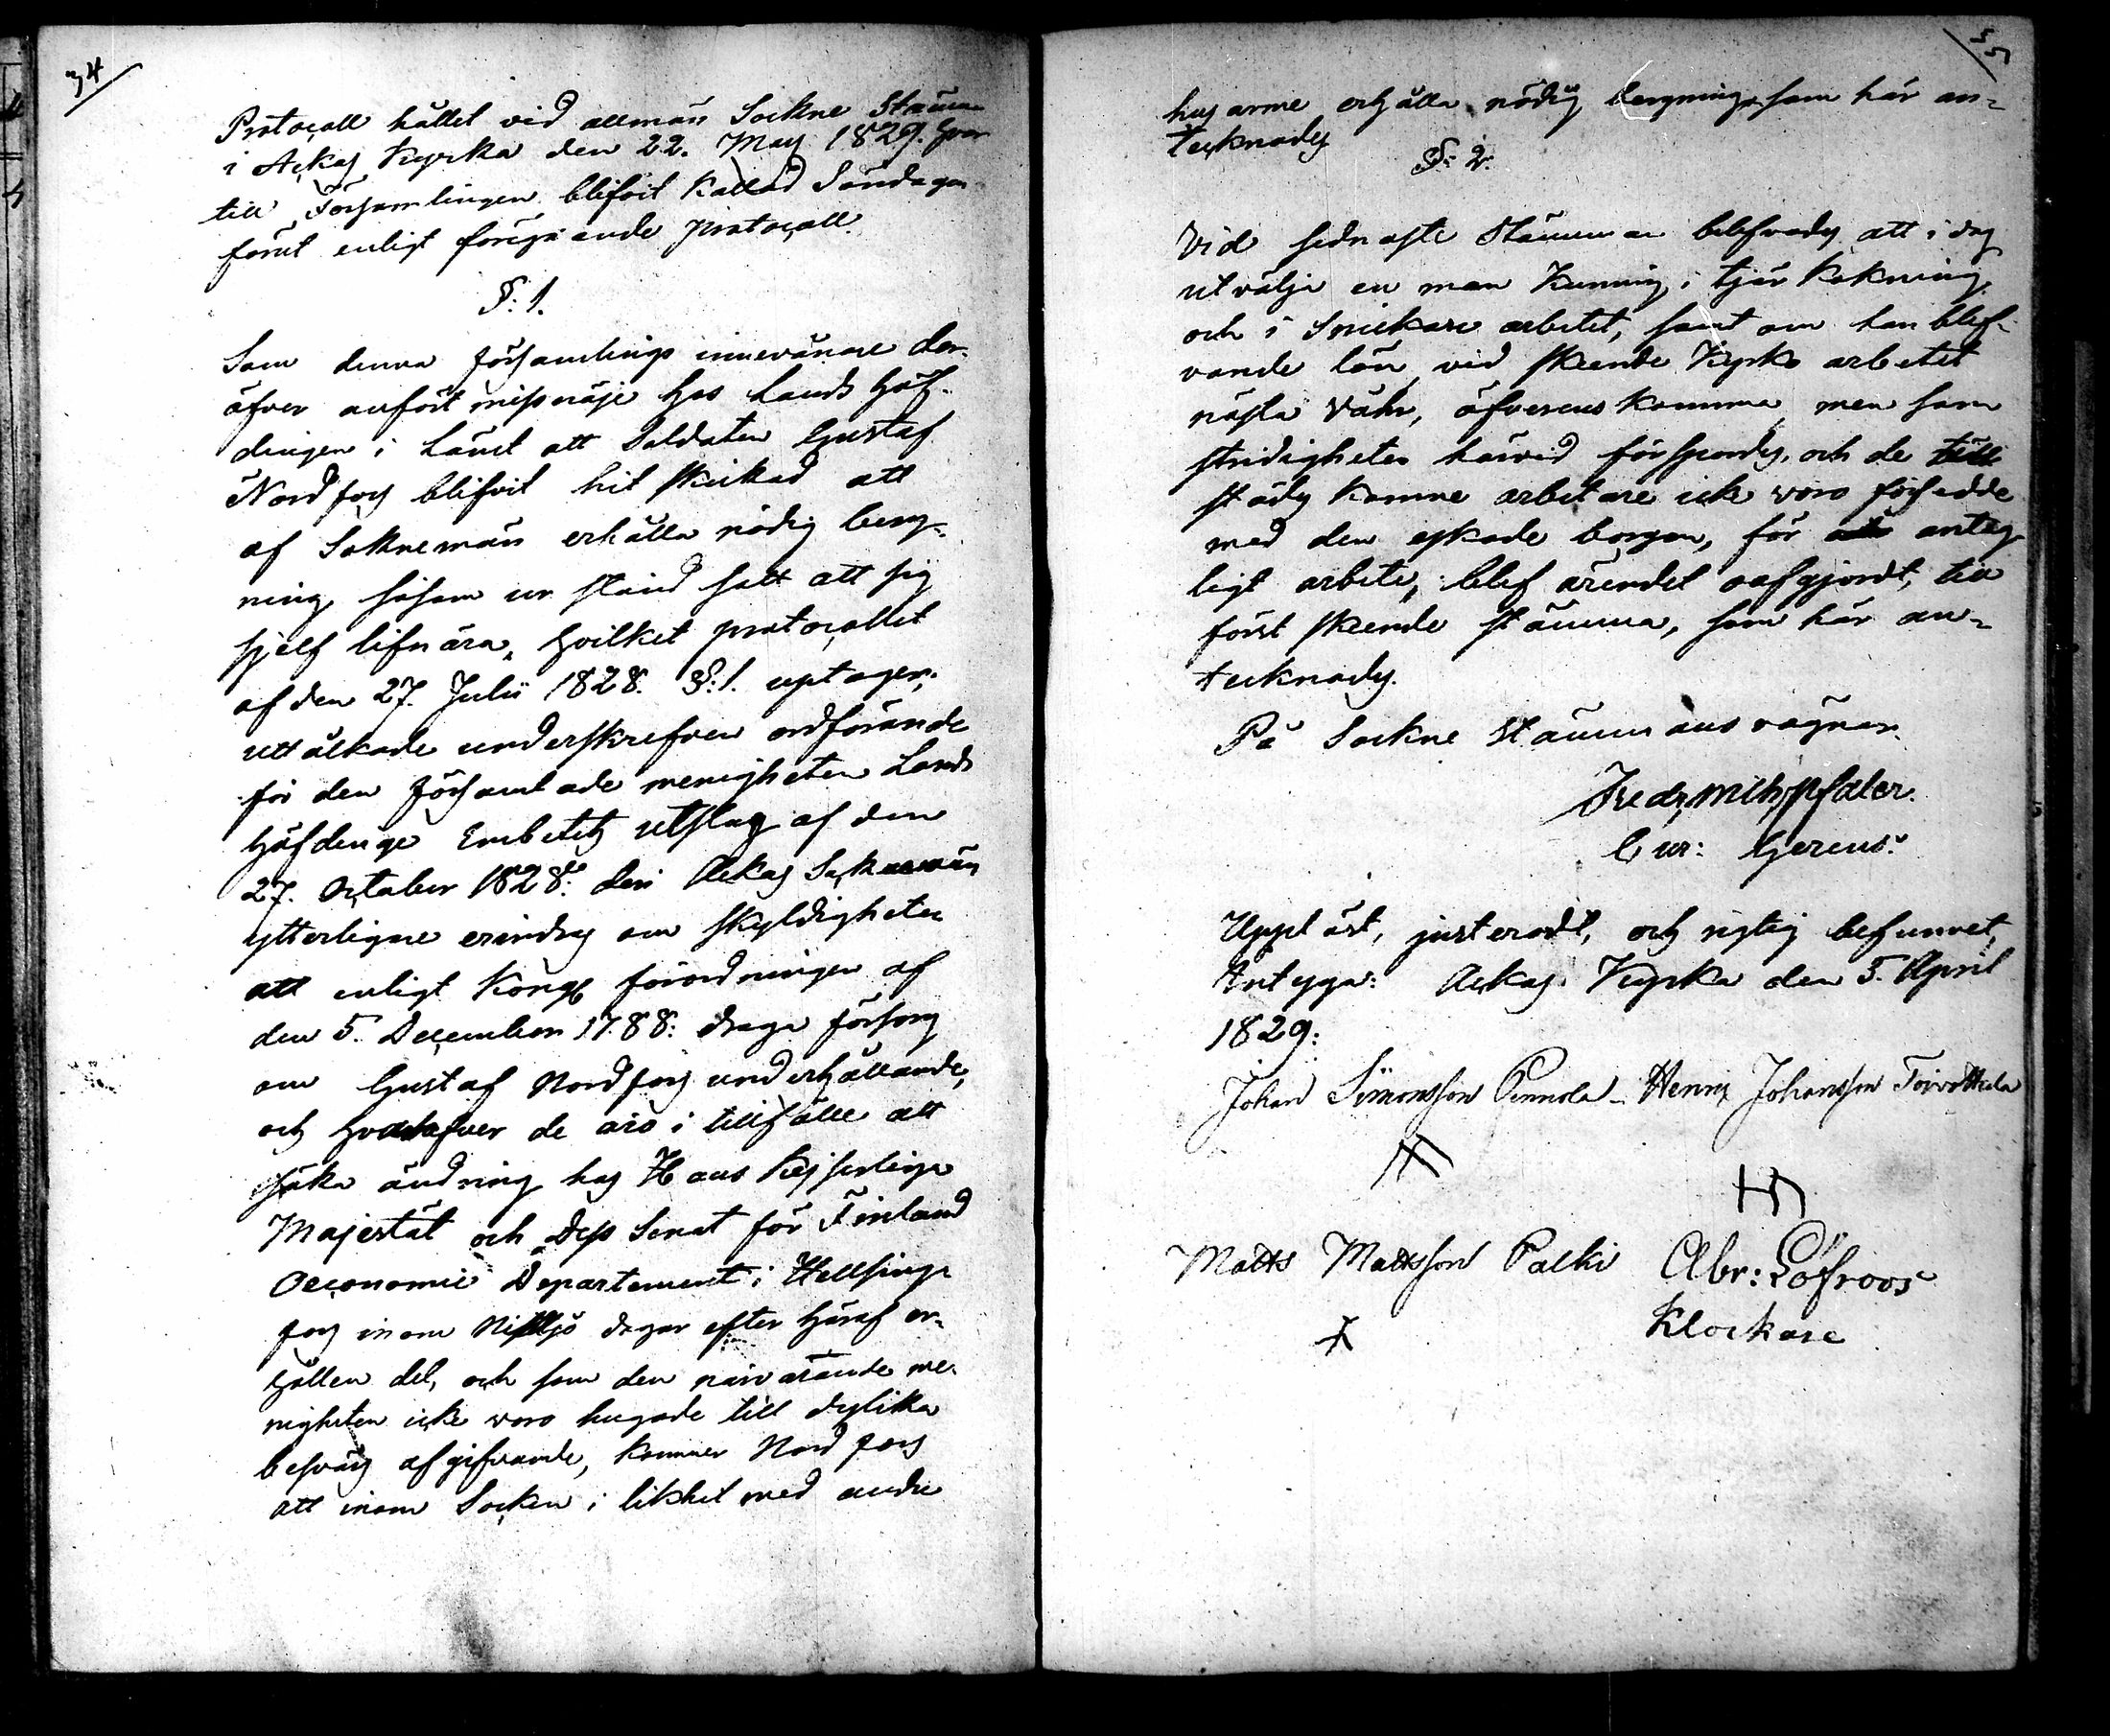 34
Protocoll hållet vid allmän Sockne Stämma
i Ackas Kyrka den 22. Maij 1829. hvar
till Församlingen blifvit kallad Söndagen
förut enligt föregående protocoll.
§: 1.
Som denna församlings innevånare der-
öfver anfört missnöje hos Lands höf-
dingen i Länet att Soldaten Gustaf
Nordfors blifvit hit skickad att
af Soknemän erhålla nödig berg-
ning, såsom ur stånd satt att sig
sjelf lifnära, hvilket protocollet
af den 27. Julii 1828. §: 1. uptager;
uttålkade underskrefven ordförande
för den församlade menigheten Lands
höfdinge Embetets utslag af den
27. October 1828: deri Ackas Soknemän
ytterligare erindras om skyldigheten
att enligt Kongl förordningen af
den 5. December 1788: draga försorg
om Gustaf Nordfors underhållande,
och hvaröfver de äro i tillfälle att
söka ändring hos Hans Kejserliga
Majestät och Dess Senat för Finland
Oeconomie Departement i Hellsing
fors inom Nittijo dagar efter häraf er-
hållen del, och som den närvarande me-
nigheten icke voro hugade till dylika
besvärs afgifvande, kommer Nordfors
att inom Socken i likhet med andre
35
hus arme erhålla nödig bergning, som här an-
tecknades
§: 2.
Vid sednaste Stämman belefvades att i dag
utvälja en man kunnig i tjär kokning
och i Snickare arbetet, samt om han blif-
vande lön, vid skeende Kyrko arbetet
nästa Våhr, öfverens komma, men som
stridigheter härvid förspordes, och de till
städes komne arbetare icke voro försedde
med den äskade borgen, för antag-
ligt arbete, blef ärendet oafgjordt, till
först skeende stämma, som här an-
tecknades.
På Sockne Stämmans vägnar
Fredr, Mich, Pfaler.
Cur: Gerens:
Uppläst, justeradt, och rigtig befunnet,
Intyga: Ackas Kyrka den 5. April
1829:
Johan Simonsson Pennola - Henric Johansson Toivottula
Matts Mattsson Palki Abr: Löfroos
Klockare